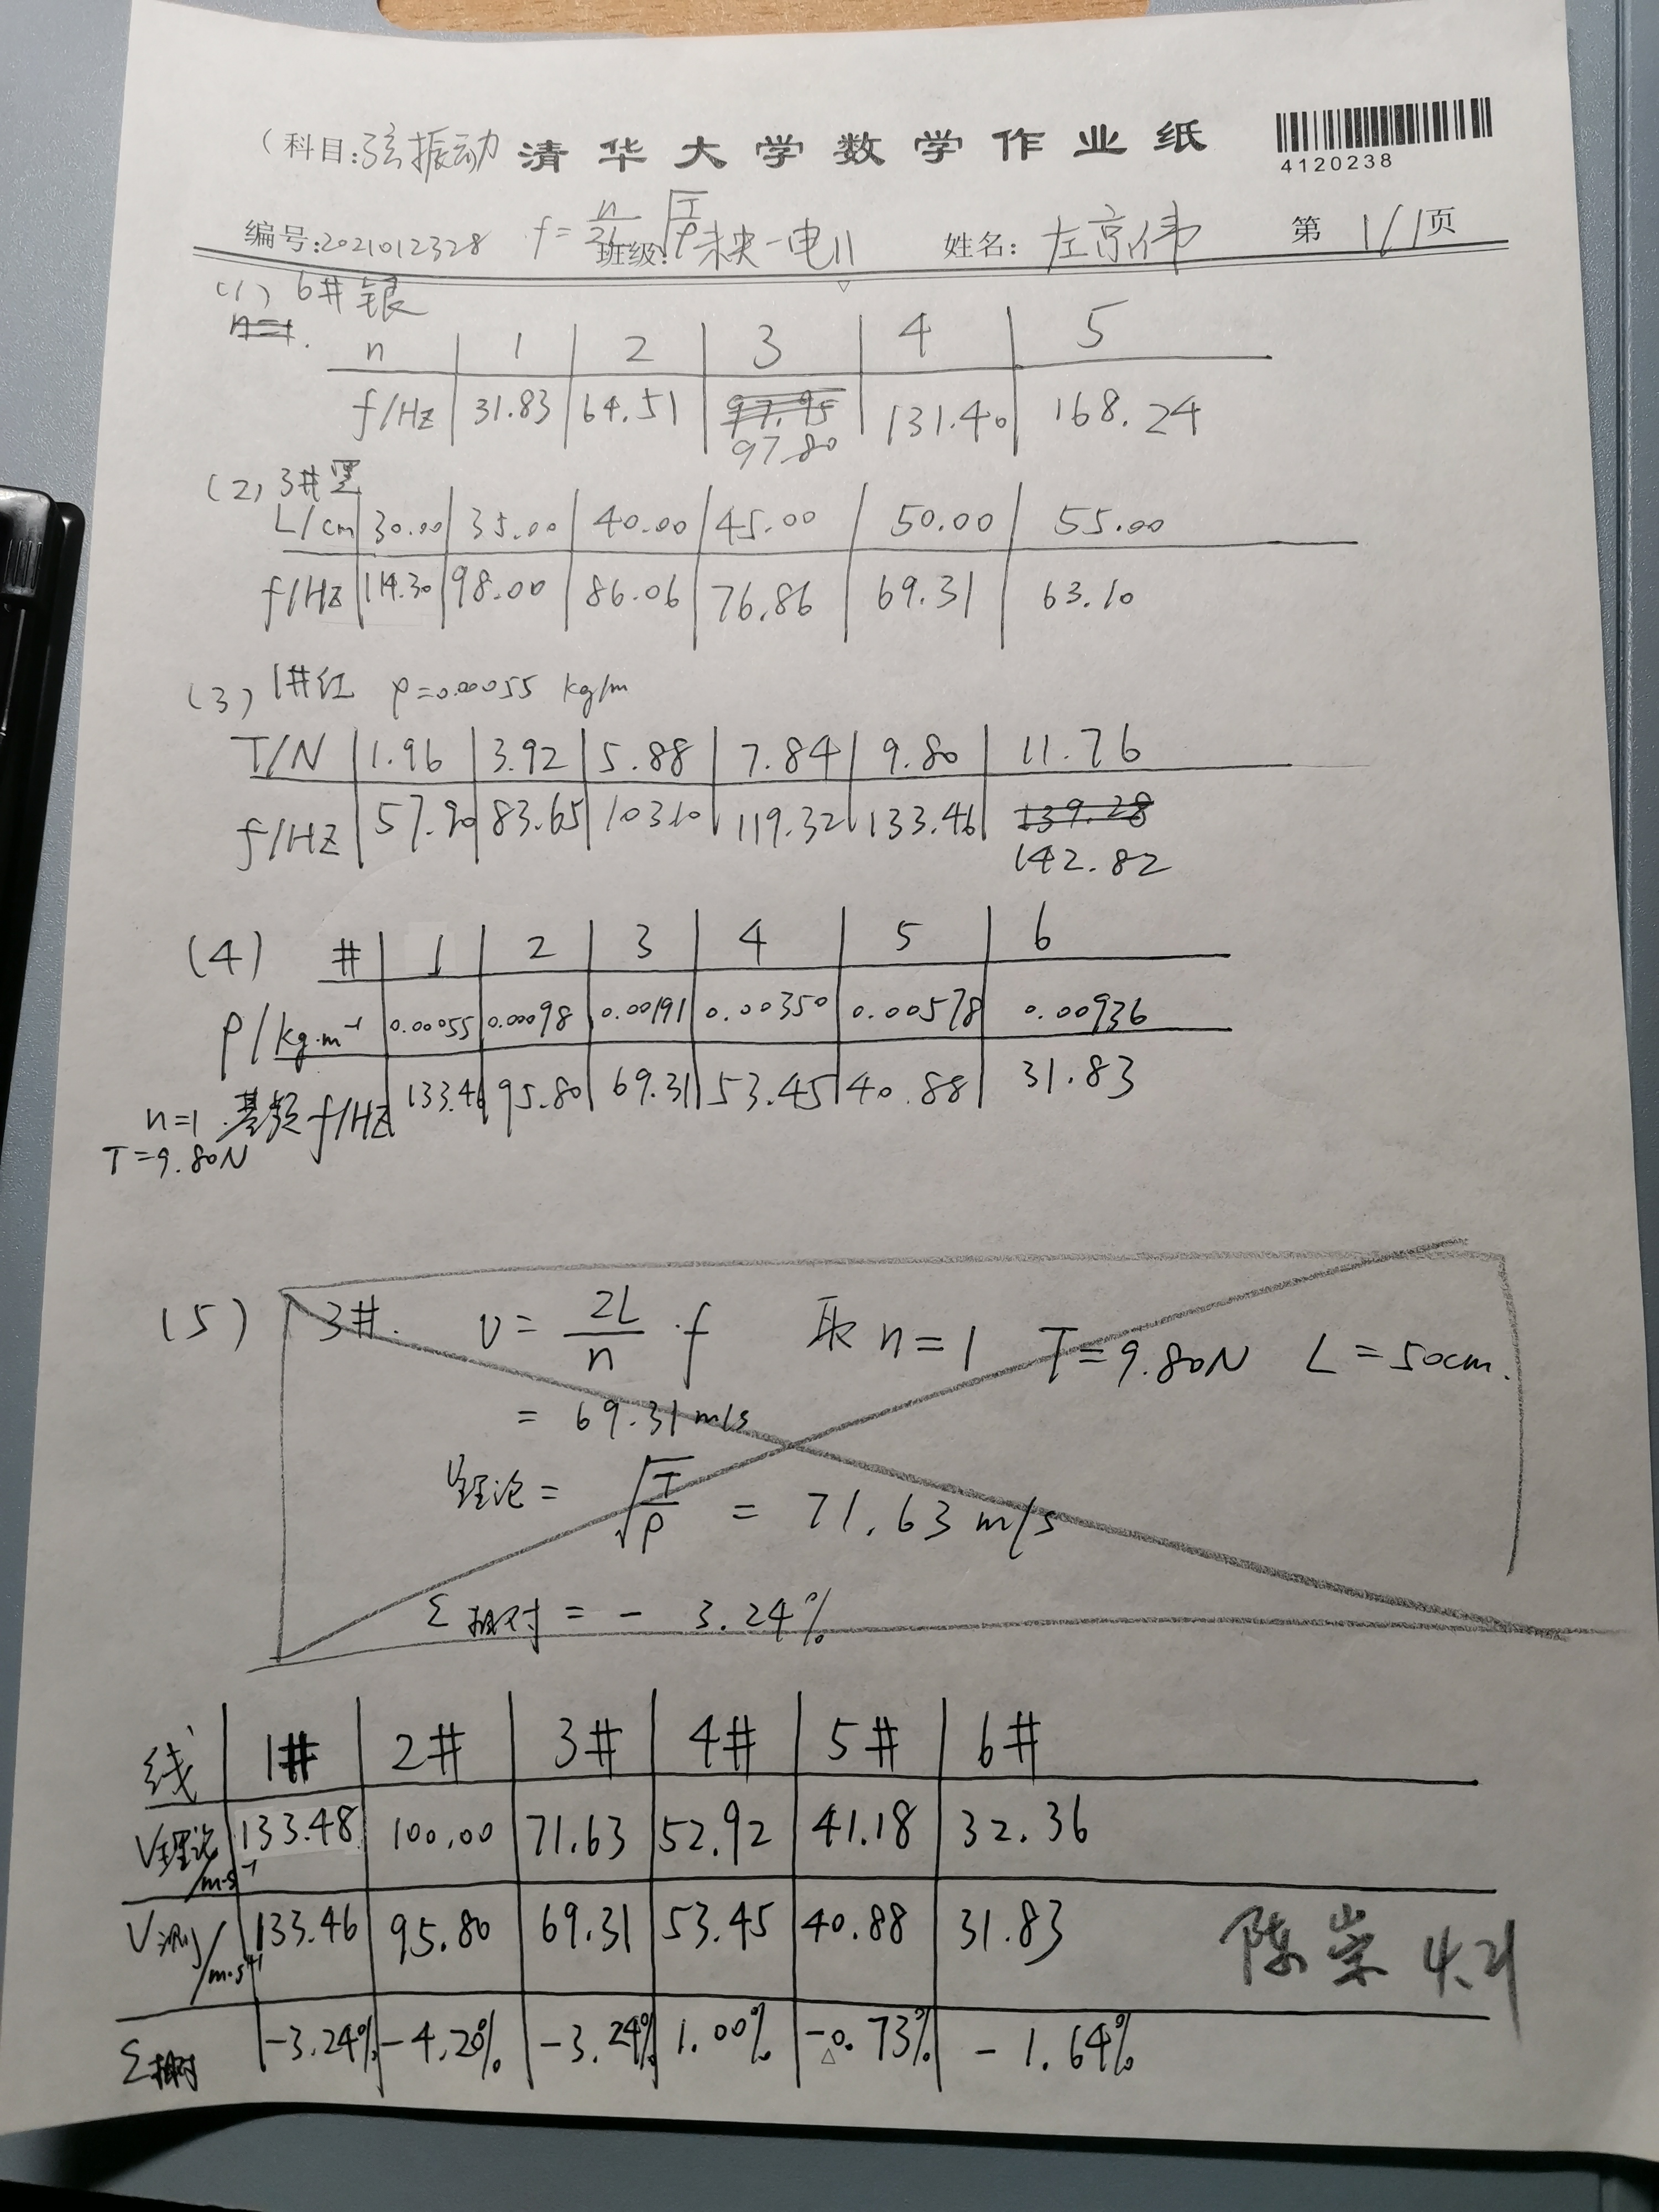 (科目:弦振动 清华大学数学作业纸
4120238
编号:2021012328 f=n/2L √T/ρ 班级:未央-电11 姓名:左京伟 第1/1页
(1) 6#银
n=1.
n 1 2 3 4 5
f/Hz 31.83 64.51 97.95 131.40 168.24
97.80
(2) 3#黑
L/cm 30.00 35.00 40.00 45.00 50.00 55.00
f/Hz 114.30 98.00 86.06 76.86 69.31 63.10
(3) 1#红 ρ=0.00055 kg/m
T/N 1.96 3.92 5.88 7.84 9.80 11.76
f/Hz 57.90 83.65 103.10 119.32 133.46 139.28
142.82
(4) # 1 2 3 4 5 6
ρ/kg·m⁻¹ 0.00055 0.00098 0.00191 0.00350 0.00578 0.00936
n=1 基频f/Hz 133.46 95.80 69.31 53.45 40.88 31.83
T=9.80N
(5) 3#. v=2L/n·f 取n=1 T=9.80N L=50cm.
=69.31m/s
v理论=√T/ρ=71.63m/s
Σ相对=-3.24%
线 1# 2# 3# 4# 5# 6#
V理论/m·s⁻¹ 133.48 100.00 71.63 52.92 41.18 32.36
V测/m·s⁻¹ 133.46 95.80 69.31 53.45 40.88 31.83
陈崇 4.21
Σ相对 -3.24% -4.20% -3.24% 1.00% -0.73% -1.64%